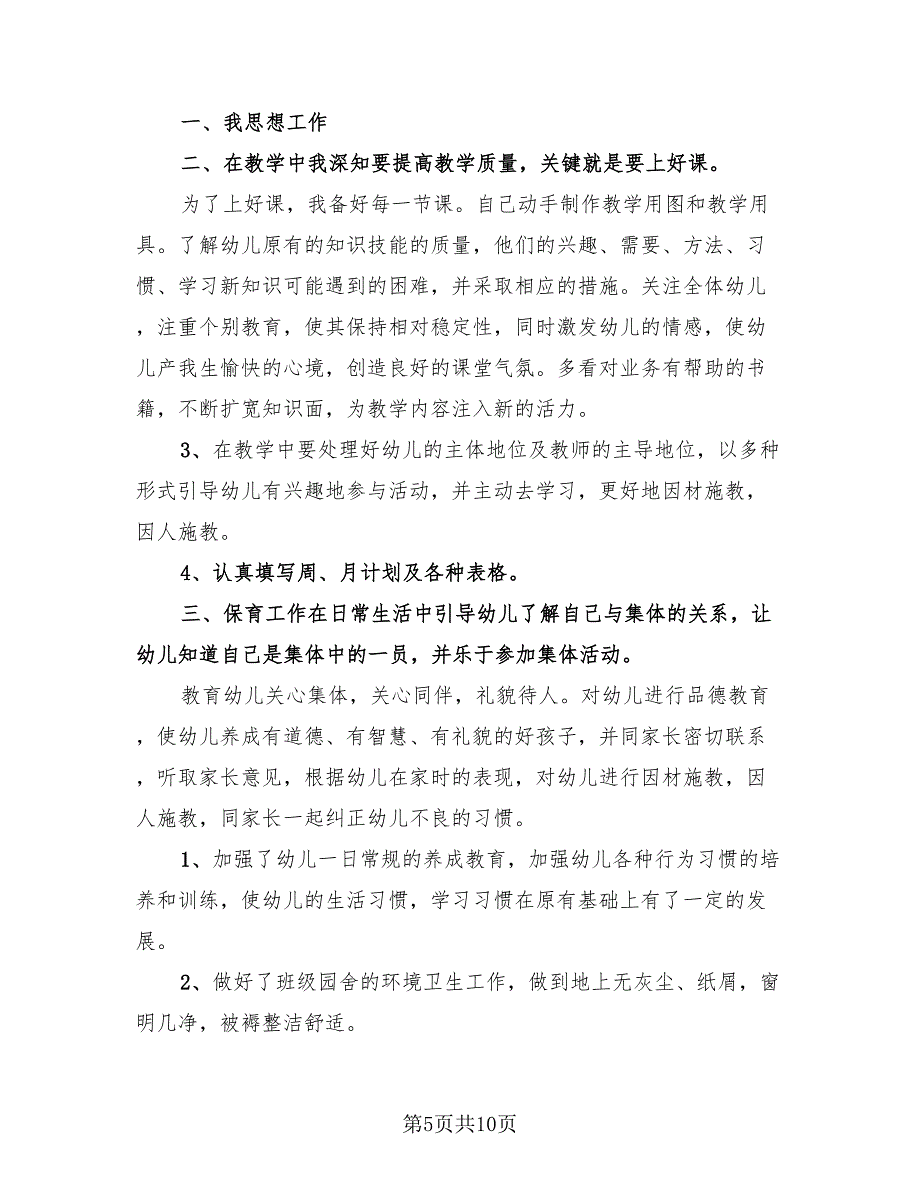 一、我思想工作
二、在教学中我深知要提高教学质量，关键就是要上好课。
为了上好课，我备好每一节课。自己动手制作教学用图和教学用
具。了解幼儿原有的知识技能的质量，他们的兴趣、需要、方法、习
惯、学习新知识可能遇到的困难，并采取相应的措施。关注全体幼儿
，注重个别教育，使其保持相对稳定性，同时激发幼儿的情感，使幼
儿产我生愉快的心境，创造良好的课堂气氛。多看对业务有帮助的书
籍，不断扩宽知识面，为教学内容注入新的活力。
3、在教学中要处理好幼儿的主体地位及教师的主导地位，以多种
形式引导幼儿有兴趣地参与活动，并主动去学习，更好地因材施教，
因人施教。
4、认真填写周、月计划及各种表格。
三、保育工作在日常生活中引导幼儿了解自己与集体的关系，让
幼儿知道自己是集体中的一员，并乐于参加集体活动。
教育幼儿关心集体，关心同伴，礼貌待人。对幼儿进行品德教育
，使幼儿养成有道德、有智慧、有礼貌的好孩子，并同家长密切联系
，听取家长意见，根据幼儿在家时的表现，对幼儿进行因材施教，因
人施教，同家长一起纠正幼儿不良的习惯。
1、加强了幼儿一日常规的养成教育，加强幼儿各种行为习惯的培
养和训练，使幼儿的生活习惯，学习习惯在原有基础上有了一定的发
展。
2、做好了班级园舍的环境卫生工作，做到地上无灰尘、纸屑，窗
明几净，被褥整洁舒适。
第5页共10页